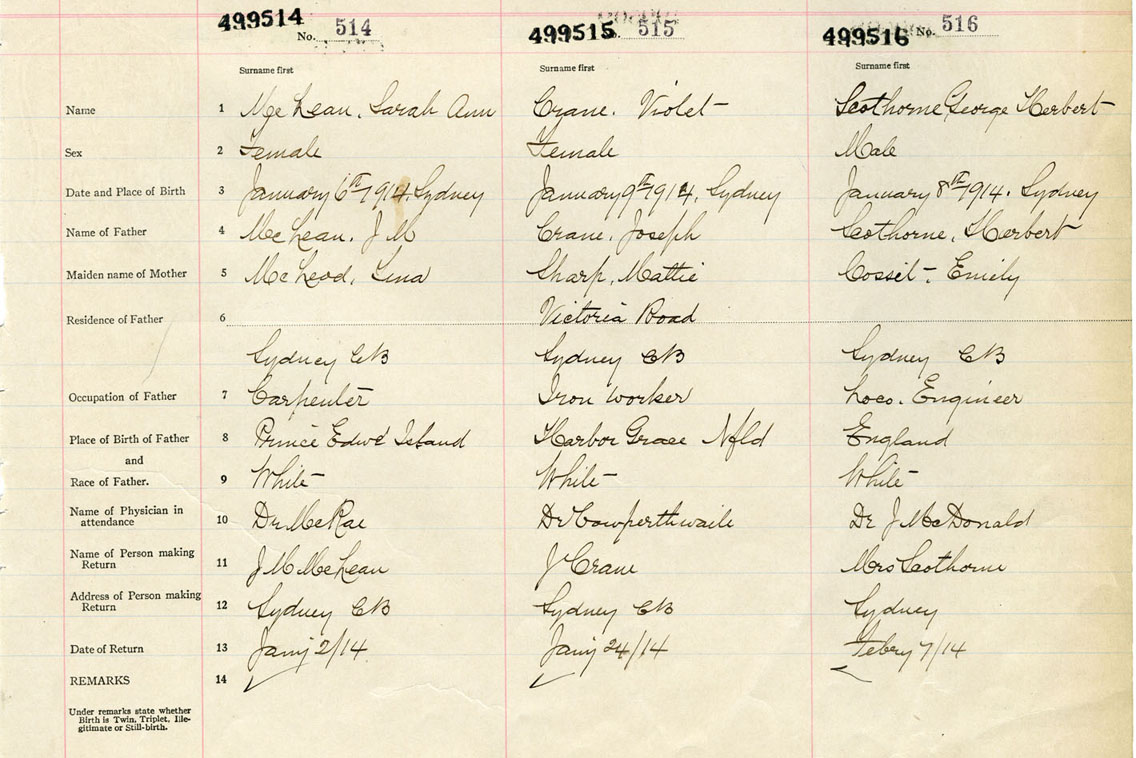 499514 No. 514 499515 No. 515 499516 No. 516
Surname first Surname first Surname first
Name 1 McLean, Sarah Ann Crane. Violet Scothorne, George Herbert
Sex 2 Female Female Male
Date and Place of Birth 3 January 6th 1914, Sydney January 9th 1914, Sydney January 8th 1914. Sydney
Name of Father 4 McLean, J M Crane, Joseph Scothorne, Herbert
Maiden name of Mother 5 McLeod, Lena Sharp, Mattie Cossit, Emily
Residence of Father 6 Victoria Road
Sydney CB Sydney CB Sydney CB
Occupation of Father 7 Carpenter Iron Worker Loco. Engineer
Place of Birth of Father 8 Prince Edwd Island Harbor Grace Nfld England
and
Race of Father. 9 White White White
Name of Physician in
attendance 10 Dr McRae Dr Cowperthwaite Dr J McDonald
Name of Person making
Return 11 J M McLean J Crane Mrs Scothorne
Address of Person making
Return 12 Sydney CB Sydney CB Sydney
Date of Return 13 Jany 2/14 Jany 24/14 Febry 7/14
REMARKS 14
Under remarks state whether
Birth is Twin, Triplet, Ille-
gitimate or Still-birth.